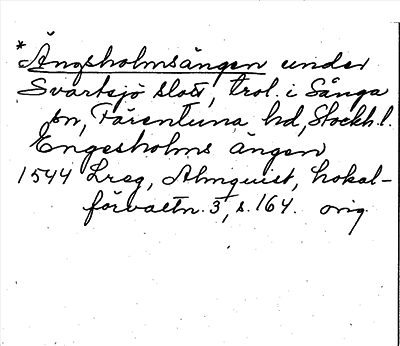 *Ängsholmsängen under
Svartsjö slott, trol. i Sånga
sn, Färentuna hd, Stockh.l.
Engesholms ängen
1544 Lreg, Almquist, Lokal-
förvaltn. 3, s. 164. orig.